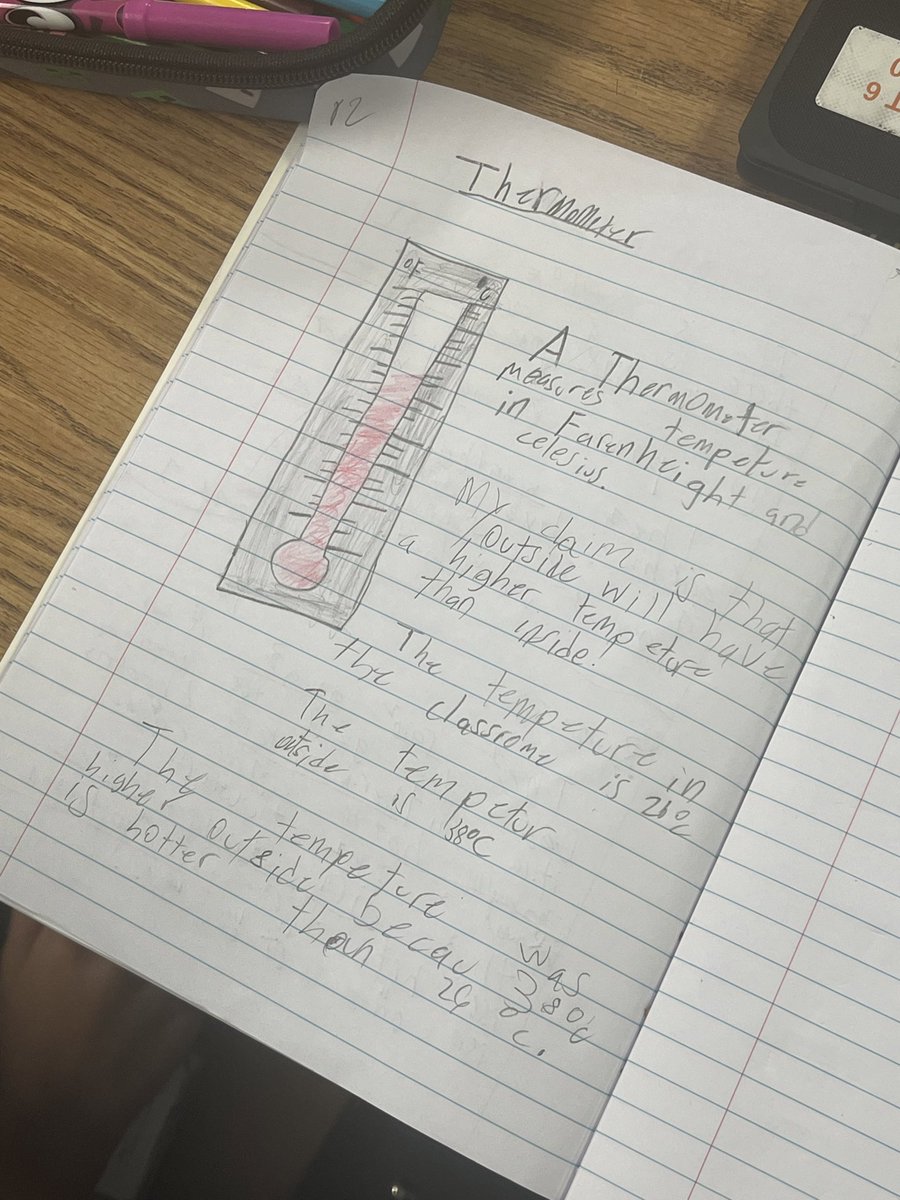 12
Thermometer
°F
°C
A Thermometer
measures tempeture
in Farenheight and
celesius.
My claim is that
outside will have
a higher tempeture
than inside.
The tempeture in
the classrome is 26°C
The tempetur
outside is 38°C
The tempeture was
higher outside becau 38°C
is hotter than 26°C.